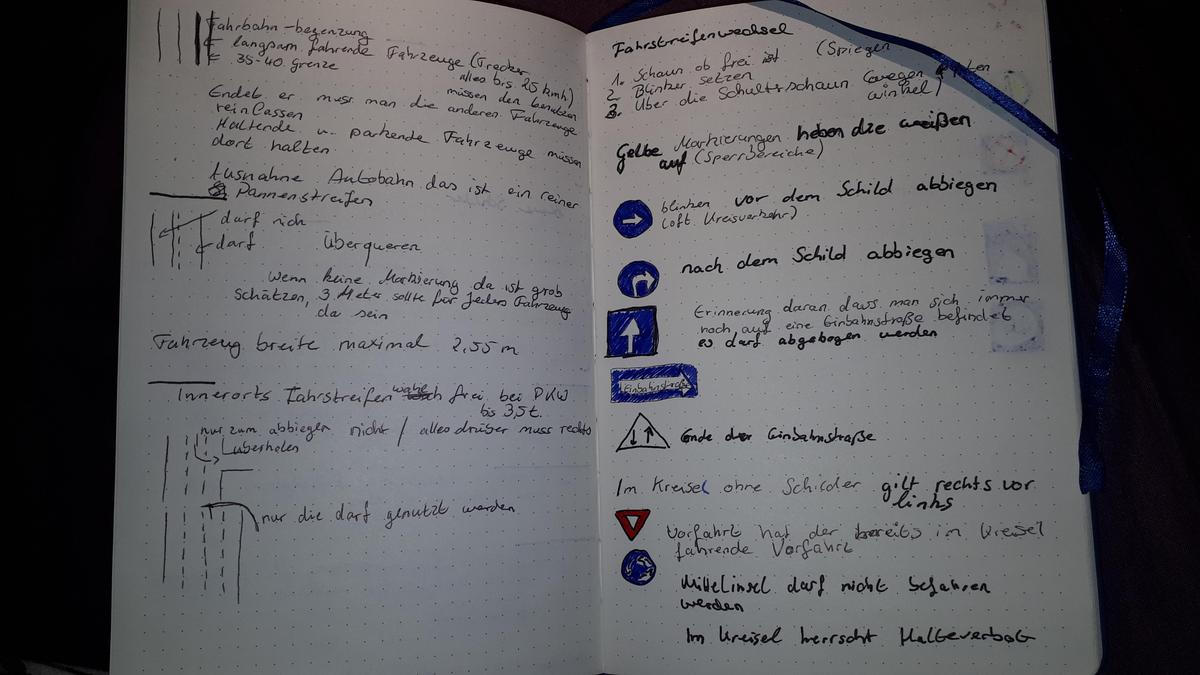 Fahrbahn-begenzung
langsam fahrende Fahrzeuge (Trecker
35-40 grenze
alles bis 25 kmh)
müssen den benutzen
Endet er muss man die anderen Fahrzeuge
reinlassen
Haltende u. parkende Fahrzeuge müssen
dort halten
Ausnahme Autobahn das ist ein reiner
Pannenstreifen
darf nich
darf überqueren
wenn keine Markierung da ist grob
schätzen, 3 Meter sollte für jedes Fahrzeug
da sein
Fahrzeug breite maximal 2,55 m
Innerorts Fahrstreifen wahl frei bei PKW
bis 3,5t.
nur zum abbiegen nicht / alles drüber muss rechts
überholen
nur die darf genutzt werden
Fahrstreifenwechsel
1. Schaun ob frei ist (Spiegen
2. Blinker setzen
3. Über die Schultsschaun (wegen toten
winkel)
Gelbe Markierungen heben die weißen
auf (Sperrbereiche)
blinken vor dem Schild abbiegen
(oft Kreisverkehr)
nach dem Schild abbiegen
Erinnerung daran dass man sich immer
noch auf eine Einbahnstraße befindet
es darf abgebogen werden
Einbahnstraße
Ende der Einbahnstraße
Im Kreisel ohne Schilder gilt rechts vor
links
Vorfahrt hat der bereits im Kreisel
fahrende Vorfahrt
Mittelinsel darf nicht befahren
werden
Im Kreisel herrscht Halteverbot